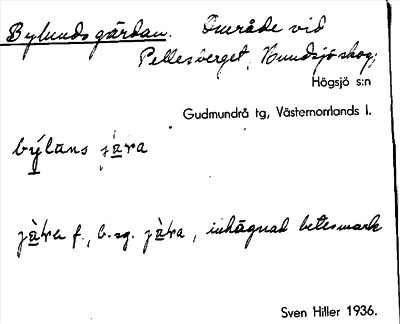 Bylundsgärdan. Område vid
Pellesberget, Hundsjöskog,
Högsjö s:n
Gudmundrå tg, Västernorrlands l.
by̍lans ja̠ra
jà̠ra f., b. sg. jà̠ra, inhägnad betesmark
Sven Hiller 1936.